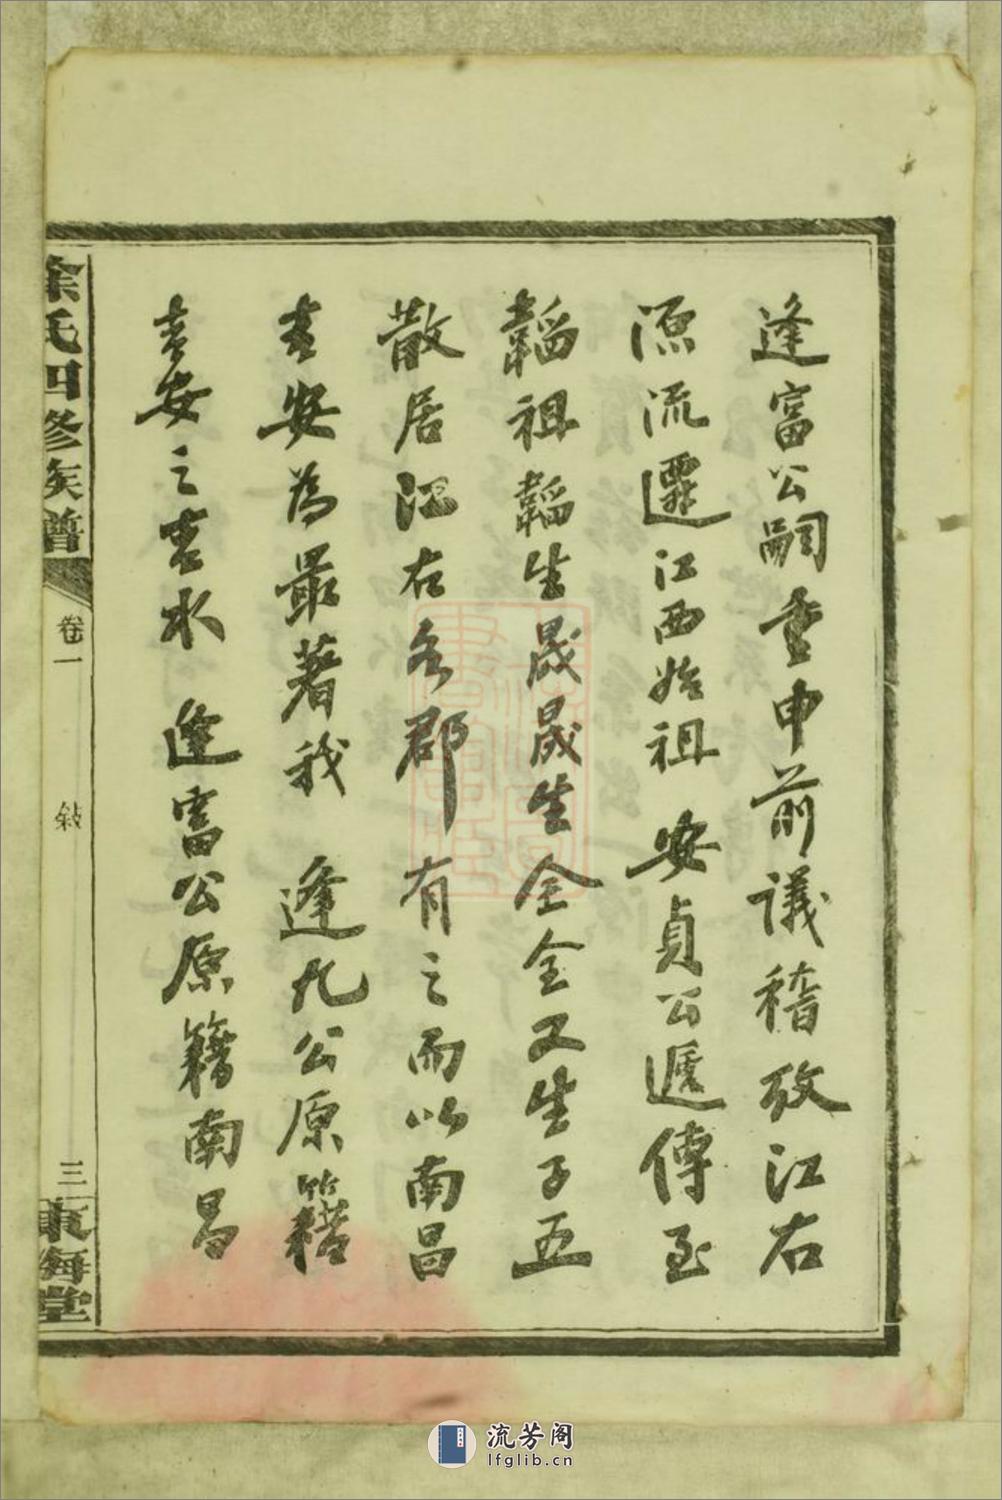 逢富公嗣重申前議稽攷江右
源流遷江西始祖 安貞公遞傳至
韜祖韜生晟晟生全全又生子五
散居江右各郡有之而以南昌
吉安為最著我 逢九公原籍
吉安之吉水 逢富公原籍南昌
徐氏四修族譜
卷一
敍
三
東海堂
流芳阁
lfglib.cn